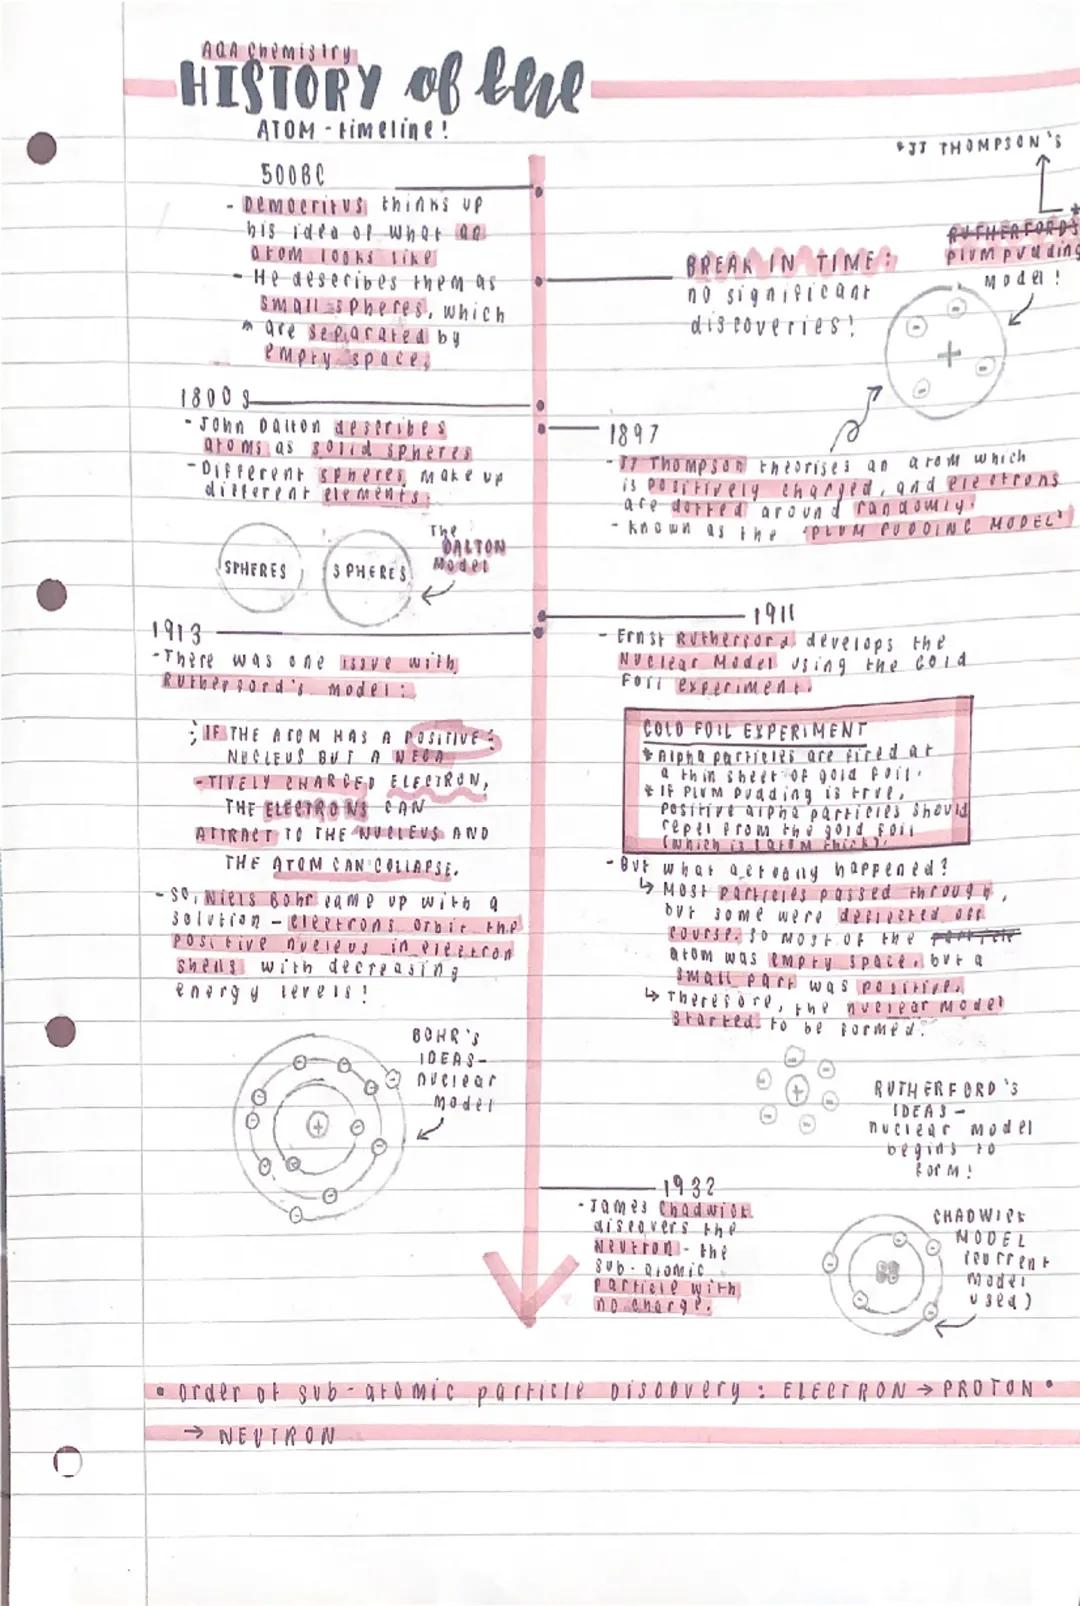 AQA Chemistry
HISTORY of the
ATOM - timeline!
500BC
- Democritus thinks up
his idea of what an
atom looks like
- He describes them as
small spheres, which
are separated by
empty space.
BREAK IN TIME:
no significant
discoveries!
*JJ THOMPSON'S
*
RUTHERFORD'S
plum pudding
Model!
1800s
- John Dalton describes
atoms as solid spheres
- Different spheres make up
different elements.
SPHERES
SPHERES
The
DALTON
Model
1897
- JJ Thompson theorises an atom which
is positively charged, and electrons
are dotted around randomly.
- Known as the 'PLUM PUDDING MODEL'
1911
- Ernst Rutherford develops the
Nuclear Model using the Gold
Foil experiment.
GOLD FOIL EXPERIMENT
* Alpha particles are fired at
a thin sheet of gold foil.
* If plum pudding is true,
positive alpha particles should
repel from the gold foil
(which is 1 atom thick).
- But what actually happened?
↳ Most particles passed through,
but some were deflected off
course. So most of the particle
atom was empty space, but a
small part was positive.
↳ Therefore, the nuclear model
started to be formed.
RUTHERFORD'S
IDEAS -
nuclear model
begins to
form!
1913
- There was one issue with
Rutherford's model:
; IF THE ATOM HAS A POSITIVE
NUCLEUS BUT A NEGA
-TIVELY CHARGED ELECTRON,
THE ELECTRONS CAN
ATTRACT TO THE NUCLEUS AND
THE ATOM CAN COLLAPSE.
- So, Niels Bohr came up with a
solution - electrons orbit the
positive nucleus in electron
shells with decreasing
energy levels!
BOHR'S
IDEAS-
nuclear
model
1932
- James Chadwick
discovers the
Neutron - the
sub-atomic
particle with
no charge.
CHADWICK
MODEL
(current
model
used)
• Order of sub-atomic particle Discovery: ELECTRON → PROTON •
→ NEUTRON